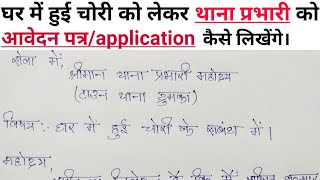 घर में हुई चोरी को लेकर थाना प्रभारी को
आवेदन पत्र/application कैसे लिखेंगे।
सेवा में,
श्रीमान थाना प्रभारी महोदय
(टाउन थाना दुमका)
विषय:- घर में हुई चोरी के संबंध में।
महोदय,